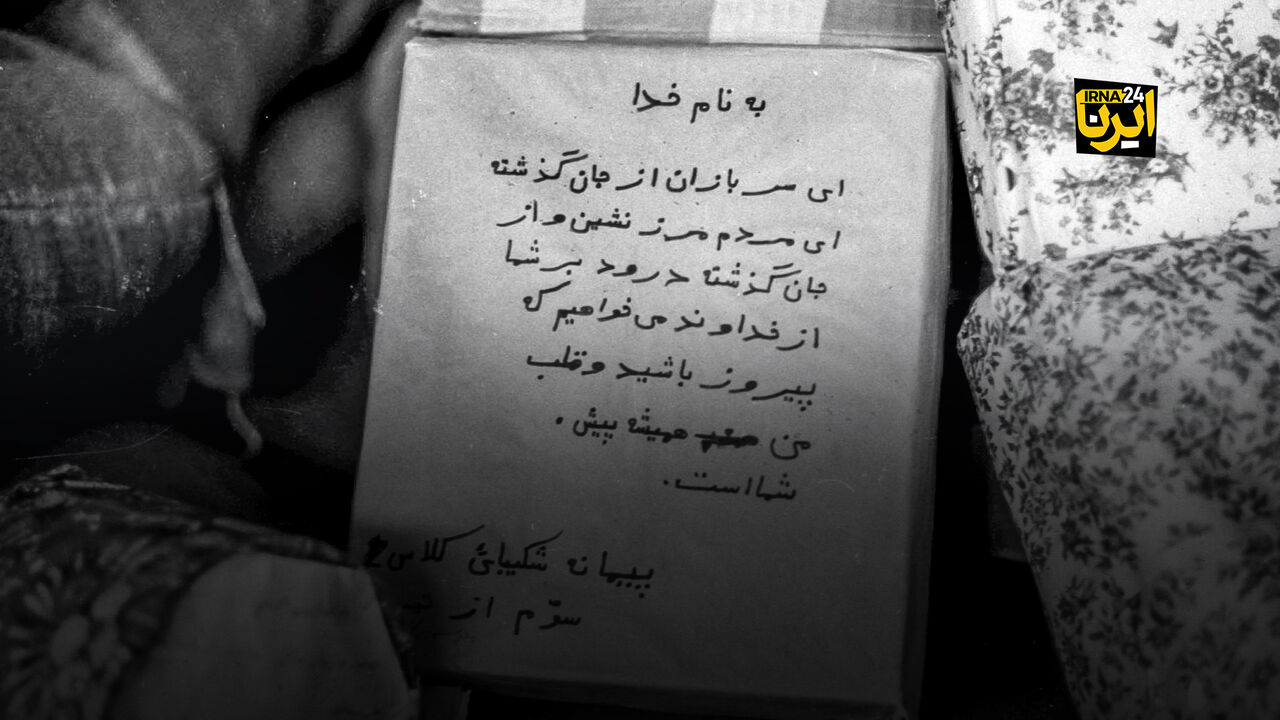 به نام خدا
ای سربازان از جان گذشته
ای مردم مرزنشین و از
جان گذشته درود بر شما
از خداوند می‌خواهیم که
پیروز باشید و قلب
من همیشه پیش.
شما است.
پیمانه شکیبائی کلاس
سوّم از
IRNA24
ایرنا